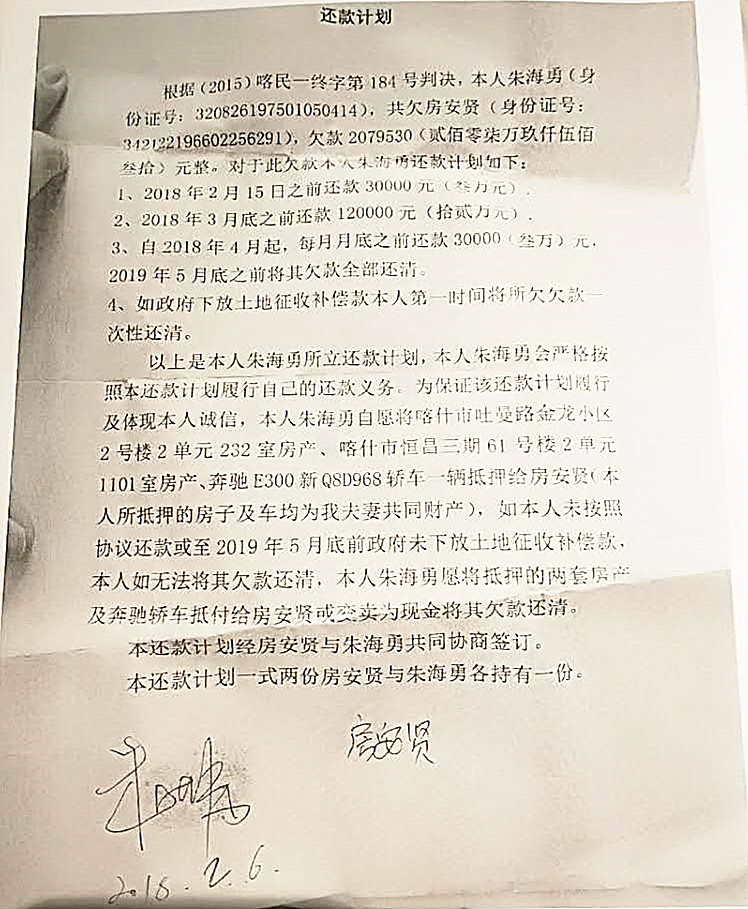 还款计划
根据(2015)喀民一终字第184号判决,本人朱海勇(身
份证号:320826197501050414),共欠房安贤(身份证号:
342122196602256291),欠款2079530(贰佰零柒万玖仟伍佰
叁拾)元整。对于此欠款本人朱海勇还款计划如下:
1、2018年2月15日之前还款30000元(叁万元).
2、2018年3月底之前还款120000元(拾贰万元).
3、自2018年4月起,每月月底之前还款30000(叁万)元,
2019年5月底之前将其欠款全部还清。
4、如政府下放土地征收补偿款本人第一时间将所欠欠款一
次性还清。
以上是本人朱海勇所立还款计划,本人朱海勇会严格按
照本还款计划履行自己的还款义务。为保证该还款计划履行
及体现本人诚信,本人朱海勇自愿将喀什市吐曼路金龙小区
2号楼2单元232室房产、喀什市恒昌三期61号楼2单元
1101室房产、奔驰E300新Q8D968轿车一辆抵押给房安贤(本
人所抵押的房子及车均为我夫妻共同财产),如本人未按照
协议还款或至2019年5月底前政府未下放土地征收补偿款,
本人如无法将其欠款还清,本人朱海勇愿将抵押的两套房产
及奔驰轿车抵付给房安贤或变卖为现金将其欠款还清。
本还款计划经房安贤与朱海勇共同协商签订。
本还款计划一式两份房安贤与朱海勇各持有一份。
房安贤
朱海勇
2018.2.6.